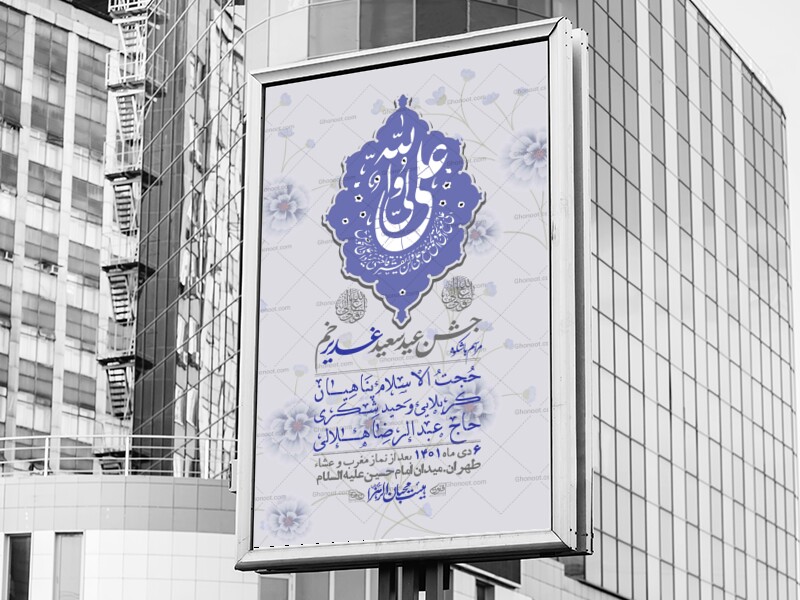 علی ولی الله
مراسم باشکوه
جشن عید سعید غدیر خم
حجت الاسلام پناهیان
کربلایی وحید شکری
حاج عبدالرضا هلالی
۶ دی ماه ۱۴۰۱ بعد از نماز مغرب و عشاء
طهران. میدان امام حسین علیه السلام
هیئت محبان الزهرا
Ghonoot.com